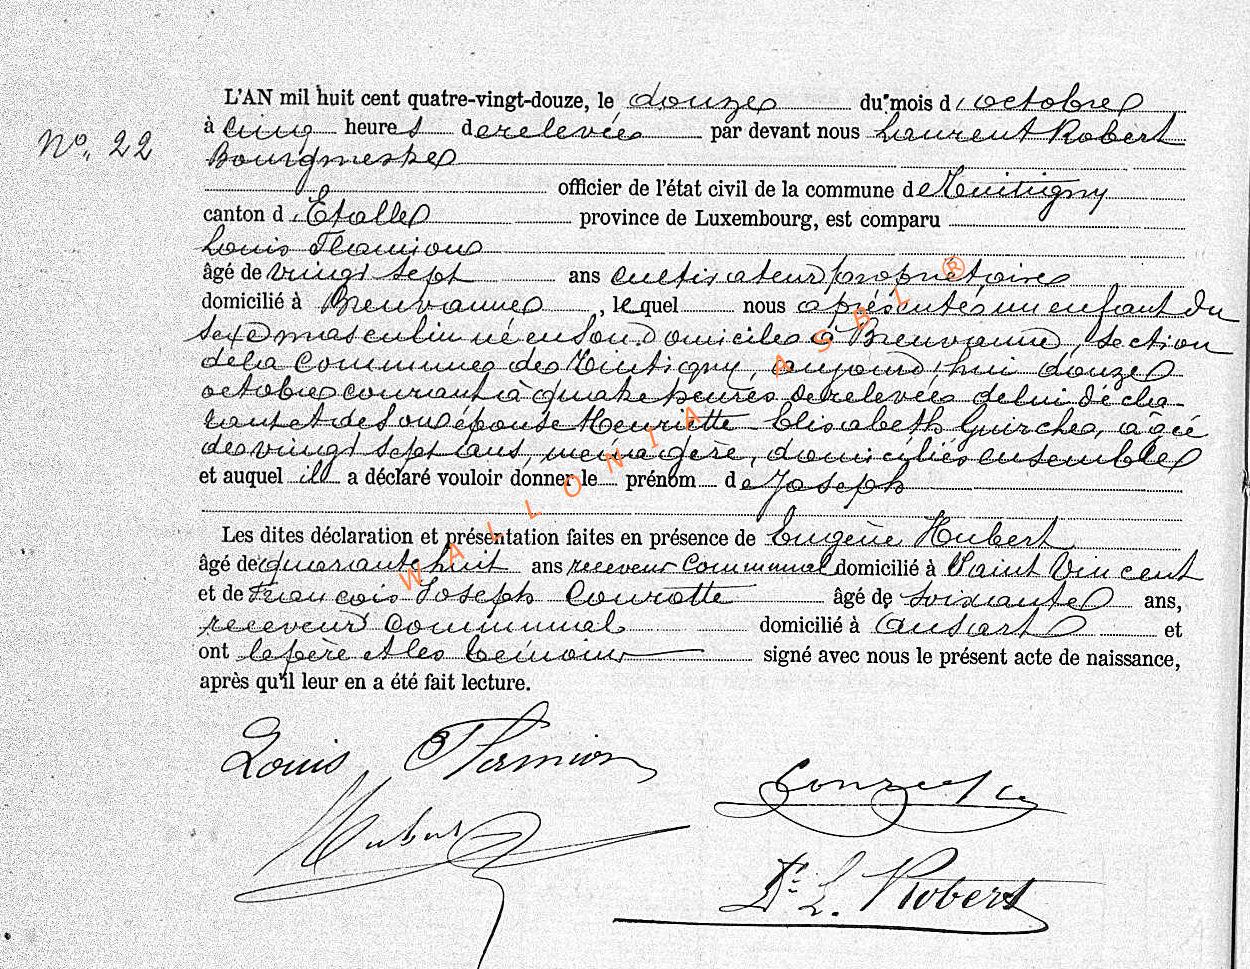 L'AN mil huit cent quatre-vingt-douze, le douze du mois d'octobre
No. 22
à cinq heures de relevée par devant nous Laurent Robert
Bourgmestre
officier de l'état civil de la commune de Tintigny
canton d'Étalle province de Luxembourg, est comparu
Louis Flamion
âgé de vingt sept ans cultivateur propriétaire
domicilié à Breuvanne, lequel nous a présenté un enfant du
sexe masculin né en son domicile à Breuvanne, section
de la commune de Tintigny, aujourd'hui douze
octobre courant à quatre heures de relevée de lui décla-
rant et de son épouse Henriette Elisabeth Guirche, âgée
de vingt sept ans, ménagère, domiciliés ensemble
et auquel il a déclaré vouloir donner le prénom de Joseph
Les dites déclaration et présentation faites en présence de Eugène Hubert
âgé de quarante huit ans receveur communal domicilié à Saint Vincent
et de François Joseph Courotte âgé de soixante ans,
receveur communal domicilié à Ansart et
ont le père et les témoins signé avec nous le présent acte de naissance,
après qu'il leur en a été fait lecture.
Louis Flamion
Hubert
Dr L. Robert
WALLONIA ASBL ®